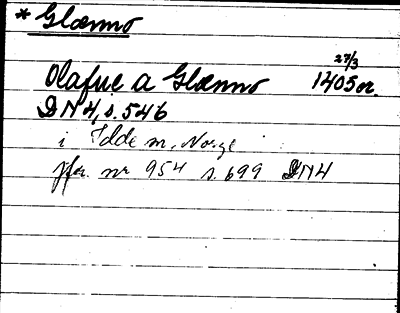 * Glænno
27/3
Olafue a Glænno 1405 or.
DN4, s. 546
i Idde m, Norge
jfr. nr 954 s. 699 DN4